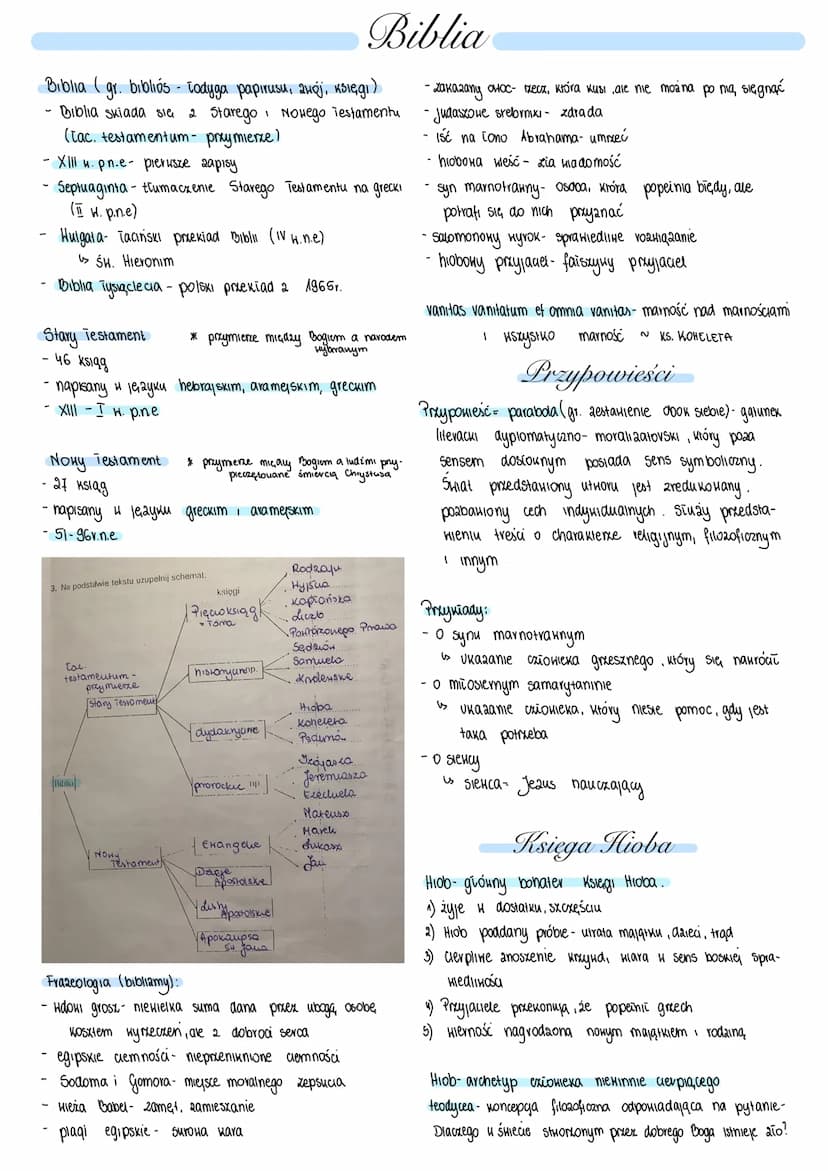 Biblia
Biblia (gr. bibliós - łodyga papirusu, zwój, księgi)
- Biblia składa się z Starego i Nowego Testamentu
(łac. testamentum - przymierze)
- XIII w. p.n.e - pierwsze zapisy
- Septuaginta - tłumaczenie Starego Testamentu na grecki
(II w. p.n.e)
- Wulgata - łaciński przekład Biblii (IV w.n.e)
↳ św. Hieronim
- Biblia Tysiąclecia - polski przekład z 1965r.
Stary Testament * przymierze między Bogiem a narodem
wybranym
- 46 ksiąg
- napisany w języku hebrajskim, aramejskim, greckim
- XIII - I w. p.n.e
Nowy Testament * przymierze między Bogiem a ludźmi przy-
pieczętowane śmiercią Chrystusa
- 27 ksiąg
- napisany w języku greckim i aramejskim
- 51-96r.n.e
3. Na podstawie tekstu uzupełnij schemat.
księgi
Biblia
łac. testamentum -
przymierze
Stary Testament
Pięcioksiąg
• Tora
Rodzaju
Wyjścia
Kapłańska
Liczb
Powtórzonego Prawa
historyczne np.
Sędziów
Samuela
Królewskie
dydaktyczne
Hioba
Koheleta
Psalmów
prorockie np
Izajasza
Jeremiasza
Ezechiela
Nowy
Testament
Ewangelie
Mateusz
Marek
Łukasz
Jan
Dzieje
Apostolskie
Listy
Apostolskie
Apokalipsa
św. Jana
Frazeologia (biblizmy):
- wdowi grosz - niewielka suma dana przez ubogą osobę,
kosztem wyrzeczeń, ale z dobroci serca
- egipskie ciemności - nieprzeniknione ciemności
- Sodoma i Gomora - miejsce moralnego zepsucia
- wieża Babel - zamęt, zamieszanie
- plagi egipskie - surowa kara
- zakazany owoc - rzecz, która kusi, ale nie można po nią sięgnąć
- judaszowe srebrniki - zdrada
- iść na łono Abrahama - umrzeć
- hiobowa wieść - zła wiadomość
- syn marnotrawny - osoba, która popełnia błędy, ale
potrafi się do nich przyznać
- salomonowy wyrok - sprawiedliwe rozwiązanie
- hiobowy przyjaciel - fałszywy przyjaciel
vanitas vanitatum et omnia vanitas - marność nad marnościami
i wszystko marność ~ KS. KOHELETA
Przypowieści
Przypowieść = parabola (gr. zestawienie obok siebie) - gatunek
literacki dyplomatyczno - moralizatorski, który poza
sensem dosłownym posiada sens symboliczny.
Świat przedstawiony utworu jest zredukowany,
pozbawiony cech indywidualnych. Służy przedsta-
wieniu treści o charakterze religijnym, filozoficznym
i innym
Przykłady:
- o synu marnotrawnym
↳ ukazanie człowieka grzesznego, który się nawrócił
- o miłosiernym samarytaninie
↳ ukazanie człowieka, który niesie pomoc, gdy jest
taka potrzeba
- o siewcy
↳ siewca - Jezus nauczający
Księga Hioba
Hiob - główny bohater Księgi Hioba.
1) żyje w dostatku, szczęściu
2) Hiob poddany próbie - utrata majątku, dzieci, trąd
3) cierpliwe znoszenie krzywd, wiara w sens boskiej spra-
wiedliwości
4) Przyjaciele przekonują, że popełnił grzech
5) wierność nagrodzona nowym majątkiem i rodziną
Hiob - archetyp człowieka niewinnie cierpiącego
teodycea - koncepcja filozoficzna odpowiadająca na pytanie -
Dlaczego w świecie stworzonym przez dobrego Boga istnieje zło?